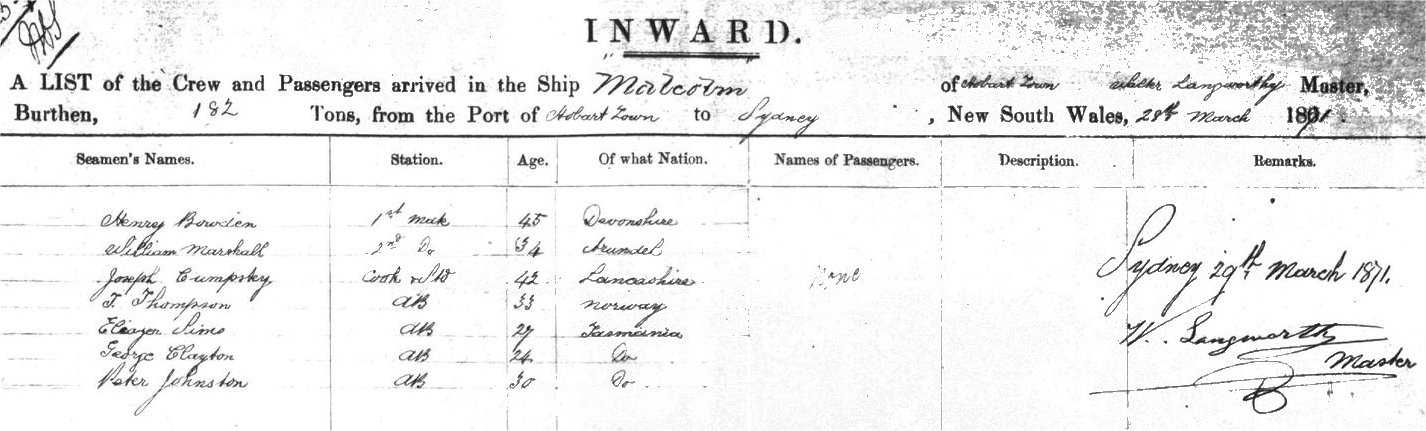 INWARD.
A LIST of the Crew and Passengers arrived in the Ship Malcolm of Hobart Town Walter Langworthy Master,
Burthen, 182 Tons, from the Port of Hobart Town to Sydney, New South Wales, 28th March 1871.
Seamen's Names. Station. Age. Of what Nation. Names of Passengers. Description. Remarks.
Henry Bowden 1st Mate 45 Devonshire
William Marshall 2nd Do 34 Arundel
Joseph Cumpskey Cook & Std 42 Lancashire None Sydney 29th March 1871.
T. Thompson AB 33 Norway
Eleazer Sims AB 27 Tasmania W. Langworthy
George Clayton AB 24 Do Master
Peter Johnston AB 30 Do